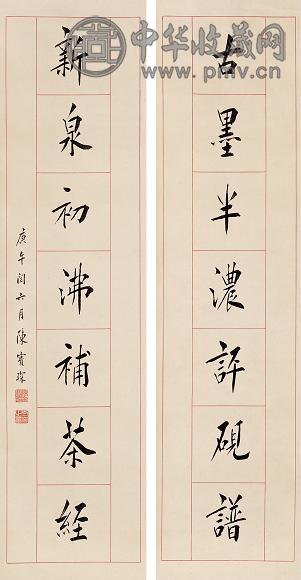 古墨半濃評硯譜
新泉初沸補茶經
庚午閏六月陳寶琛
中华收藏网
www.pmv.cn